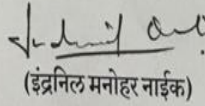 (इंद्रनिल मनोहर नाईक)